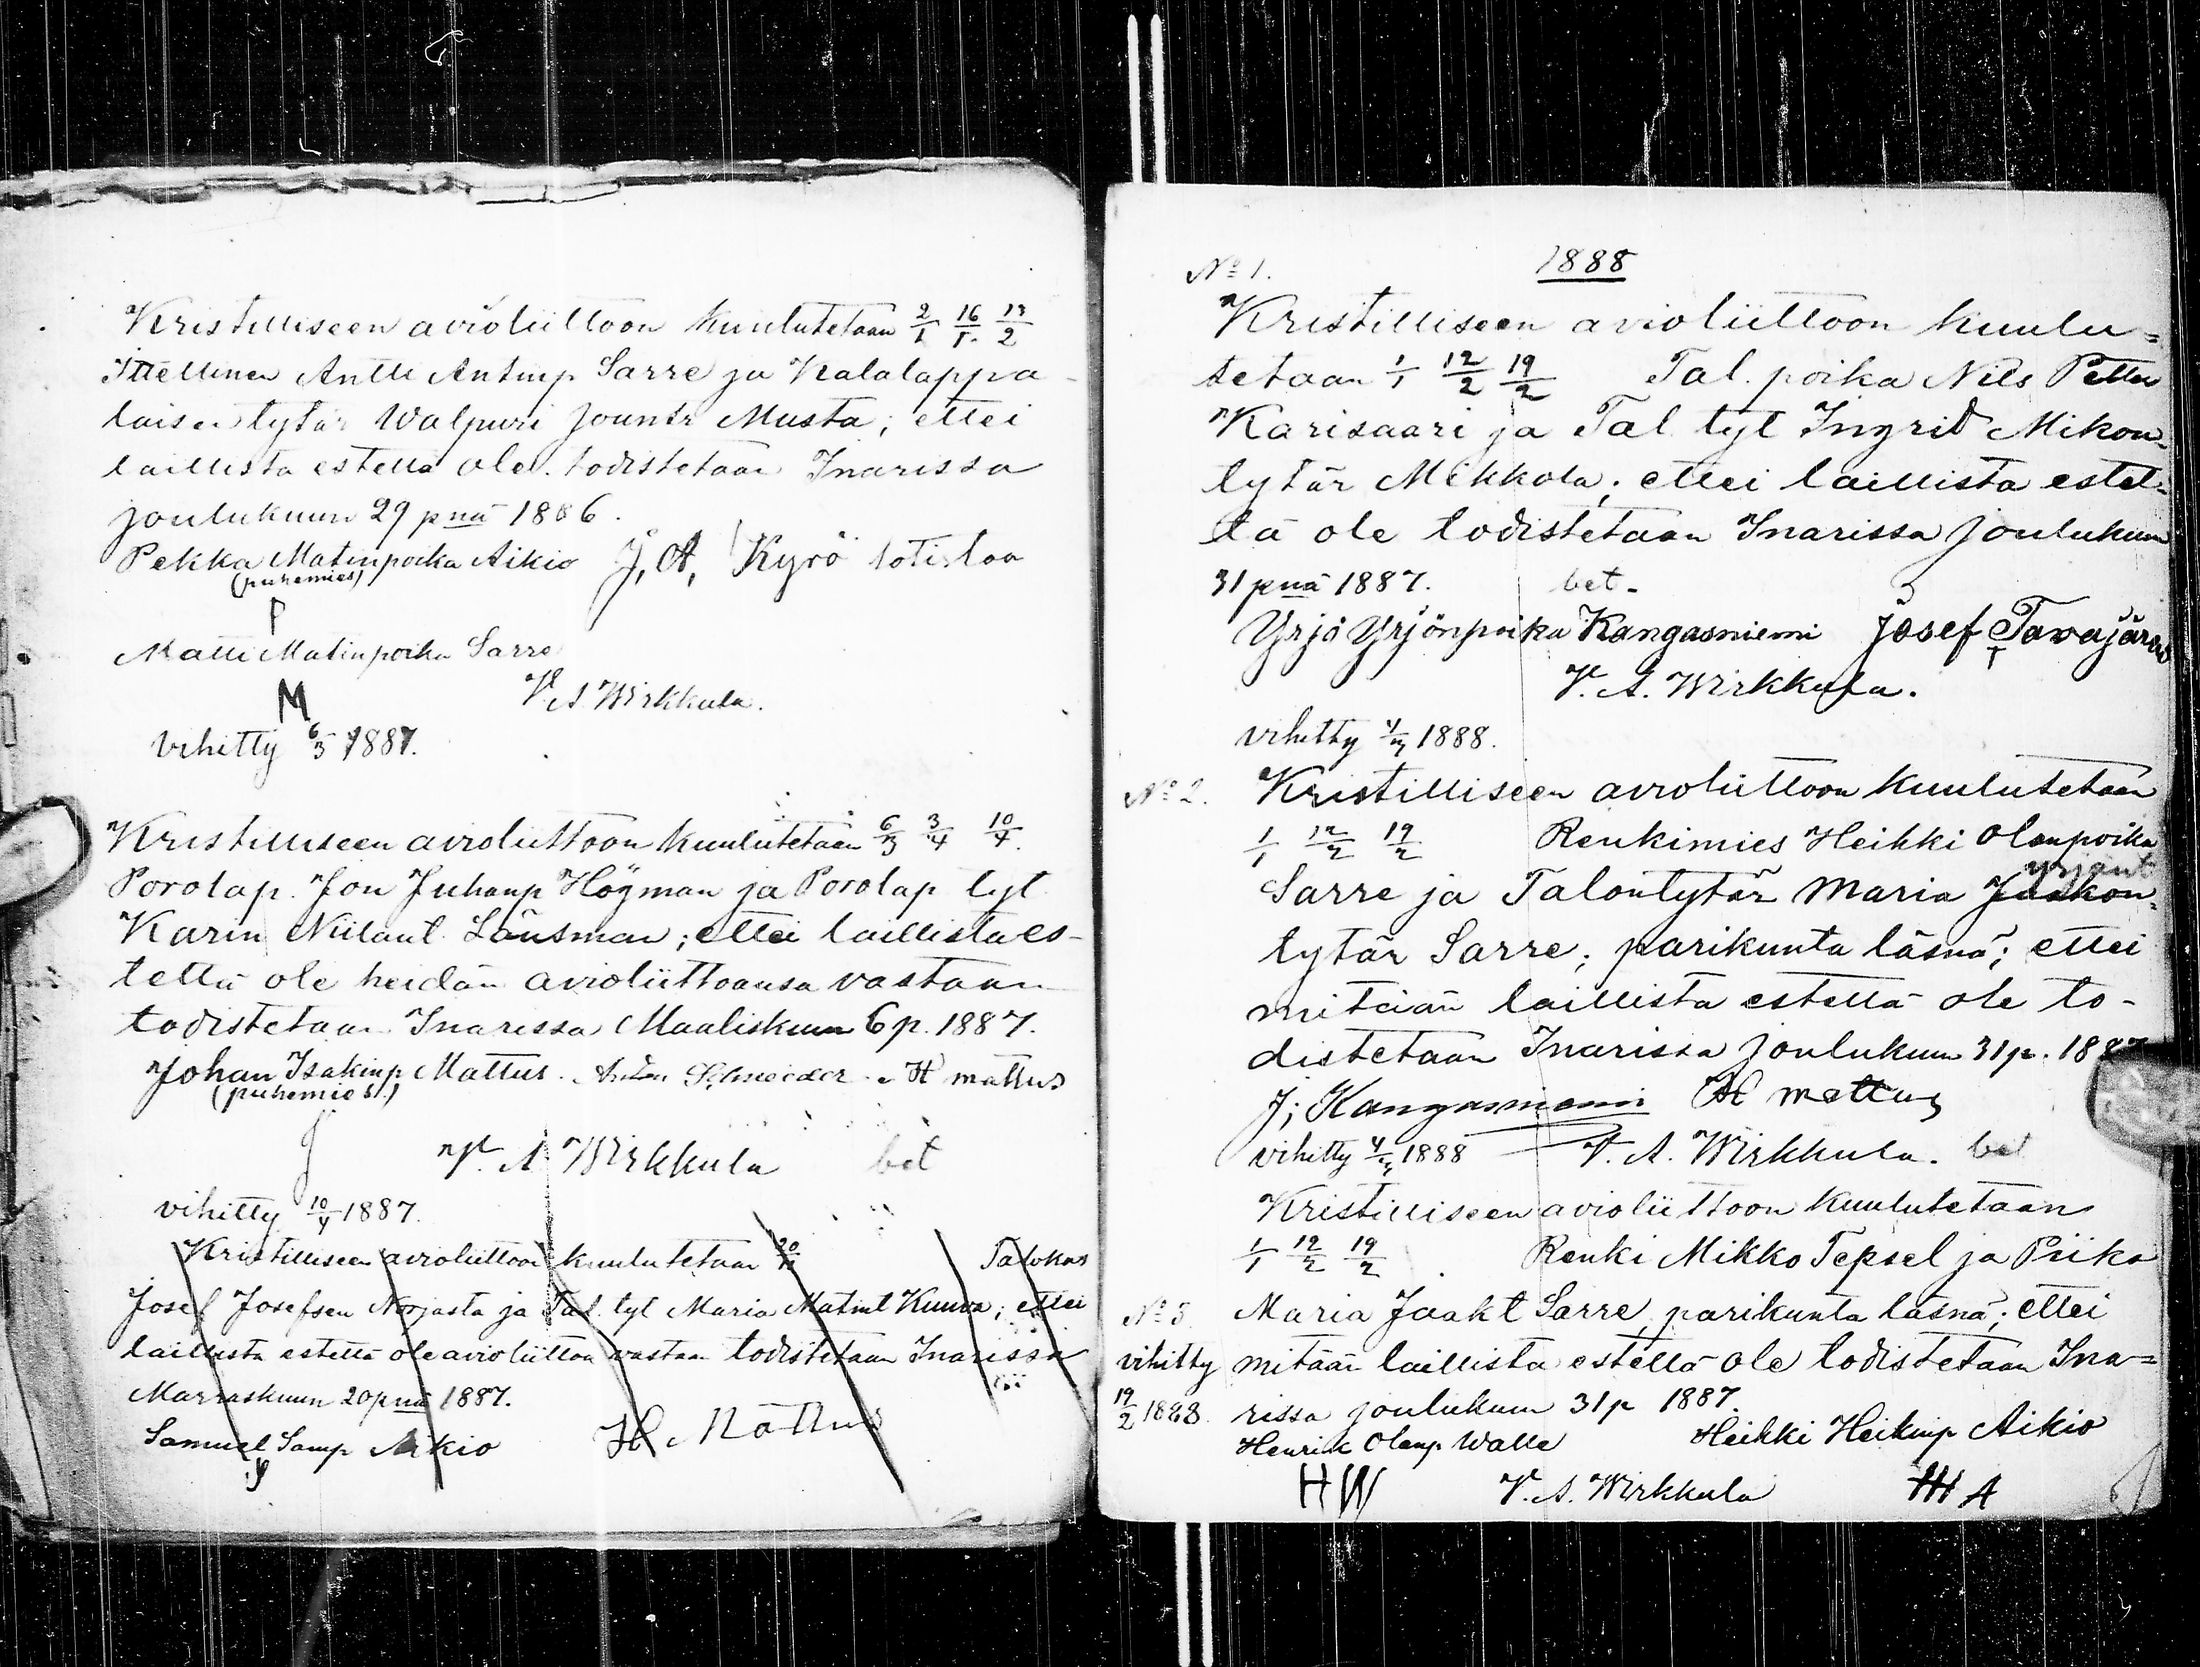 Kristilliseen avioliittoon kuulutetaan 2/1 16/1. 13/2
Ittellinen Antti Antinp Sarre ja Kalalappa-
laisen tytär Walpuri Jountr Musta; ettei
laillista estettä ole. todistetaan Inarissa
joulukuun 29 pnä 1886.
Pekka Matinpoika Aikio J, A, Kyrö totistaa
(puhemies)
P
Matti Matinpoika Sarre
M V. A Wirkkula.
vihitty 6/3 1887.
Kristilliseen avioliittoon kuulutetaan 6/3 3/4 10/4.
Porolap. Jon Juhanp Högman ja Porolap tyt
Karin Niilant. Länsman; ettei laillista es-
tettä ole heidän avioliittoansa vastaan
todistetaan Inarissa Maaliskuun 6 p. 1887.
Johan Isakinp Mattus. Anton Schneider. H mattus
(puhemies!)
J V. A Wirkkula bet
vihitty 10/4 1887.
Kristilliseen avioliittoon kuulutetaan Talokas
Josef Josefsen Norjasta ja Tal. tyt Maria Matint Kuuva; ettei
laillista estettä ole avioliittoa vastaan todistetaan Inarissa
Marraskuun 20 pnä 1887.
Samuel Samp Aikio H Mattus
1888
No 1.
Kristilliseen avioliittoon kuulu=
tetaan 1/1 12/2 19/2 Tal. poika Nils Petter
Karisaari ja Tal tyt Ingrid Mikon=
tytär Mikkola; ettei laillista estet=
tä ole todistetaan Inarissa Joulukuun
31 pnä 1887. bet.
Yrjö Yrjönpoika Kangasniemi Josef Tavajärvi
V. A. Wirkkula.
vihitty 4/3 1888.
No 2. Kristilliseen avioliittoon kuulutetaan
1/1 12/2 19/2 Renkimies Heikki Olanpoika
Yrjänt
Sarre ja Talontytär Maria Jaakon=
tytär Sarre; parikunta läsnä; ettei
mitään laillista estettä ole to-
distetaan Inarissa Joulukuun 31 p. 1887
J; Kangasniemi H mattus
vihitty 4/3 1888 V. A. Wirkkula. bet
Kristilliseen avioliittoon kuulutetaan
1/1 12/2 19/2 Renki Mikko Tepsel ja Piika
No 3. Maria Jaakt Sarre, parikunta läsnä; ettei
vihitty mitään laillista estettä ole todistetaan Ina=
19/2 1888. rissa joulukuun 31 p 1887.
Henrik Olanp Walle Heikki Heikinp Aikio
HW V. A. Wirkkula HH A